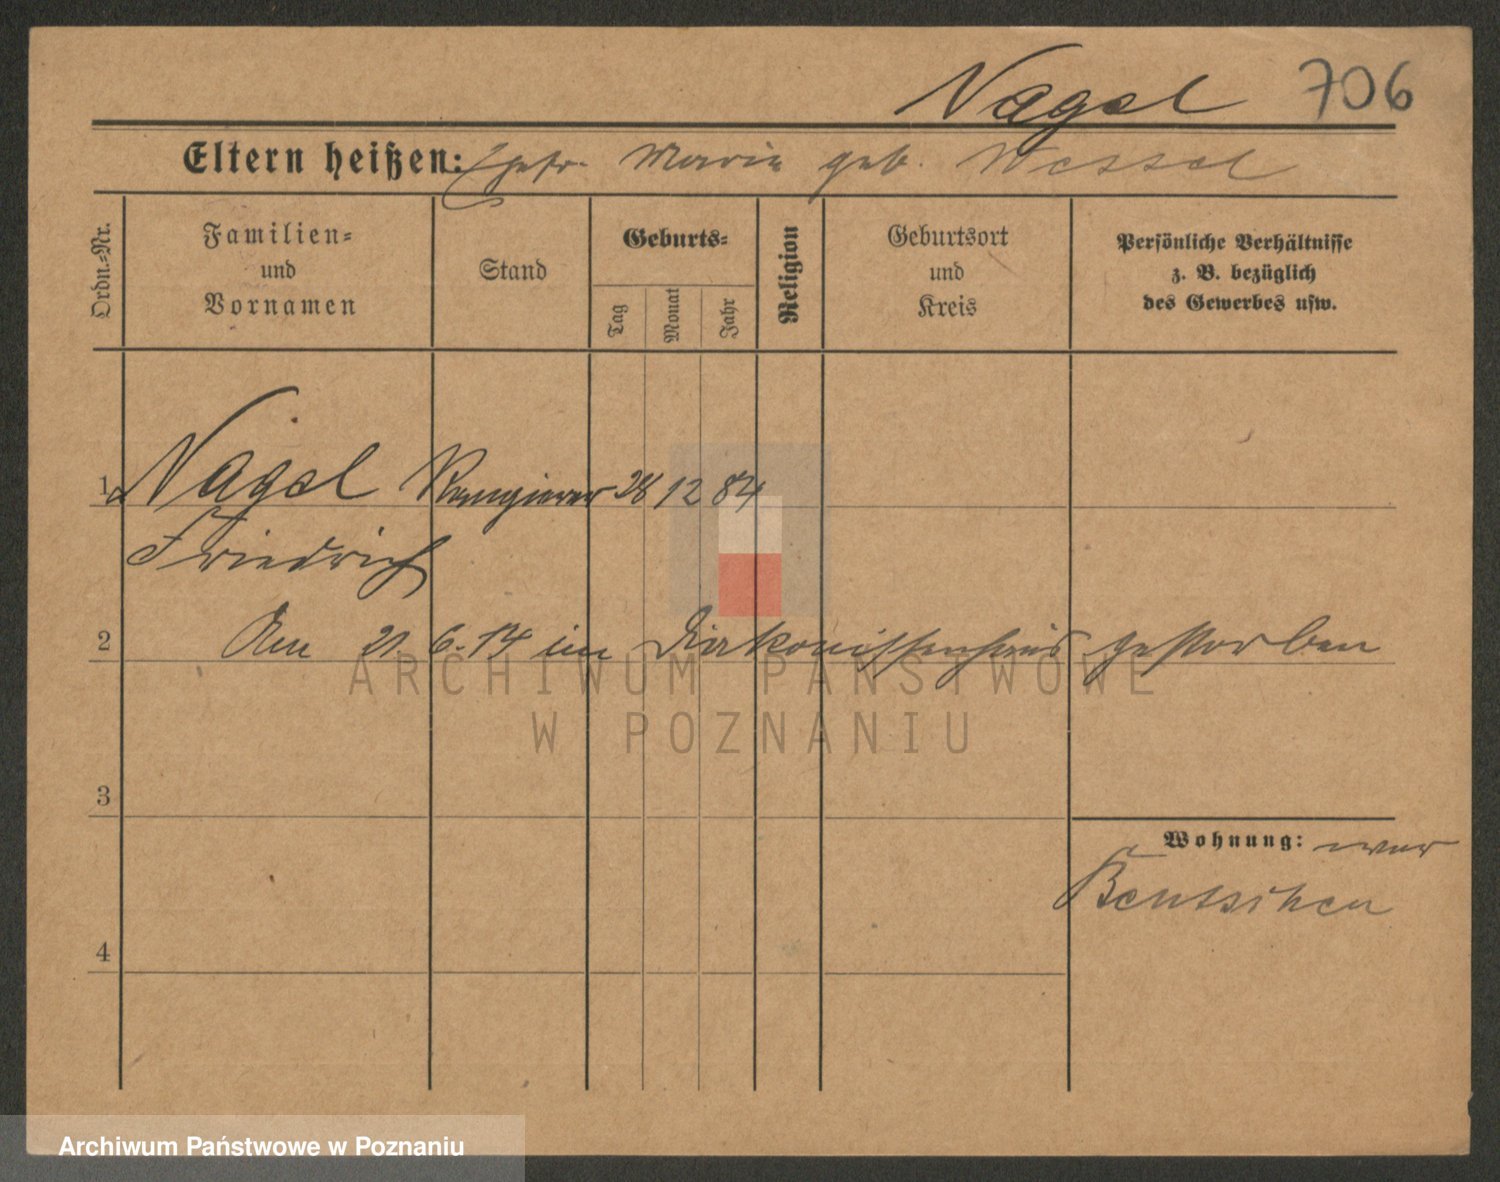 Nagel 706
Eltern heißen: Ehefr. Marie geb. Wessel
Ordn.-Nr.
Familien-
und
Vornamen
Stand
Geburts-
Tag
Monat
Jahr
Religion
Geburtsort
und
Kreis
Persönliche Verhältnisse
z. B. bezüglich
des Gewerbes usw.
1 Nagel Rangierer 28 12 84
Friedrich
2 Am 21. 6. 14 im Diakonissenhaus gestorben
ARCHIWUM PAŃSTWOWE
W POZNANIU
3
Wohnung: war
Bentschen
4
Archiwum Państwowe w Poznaniu